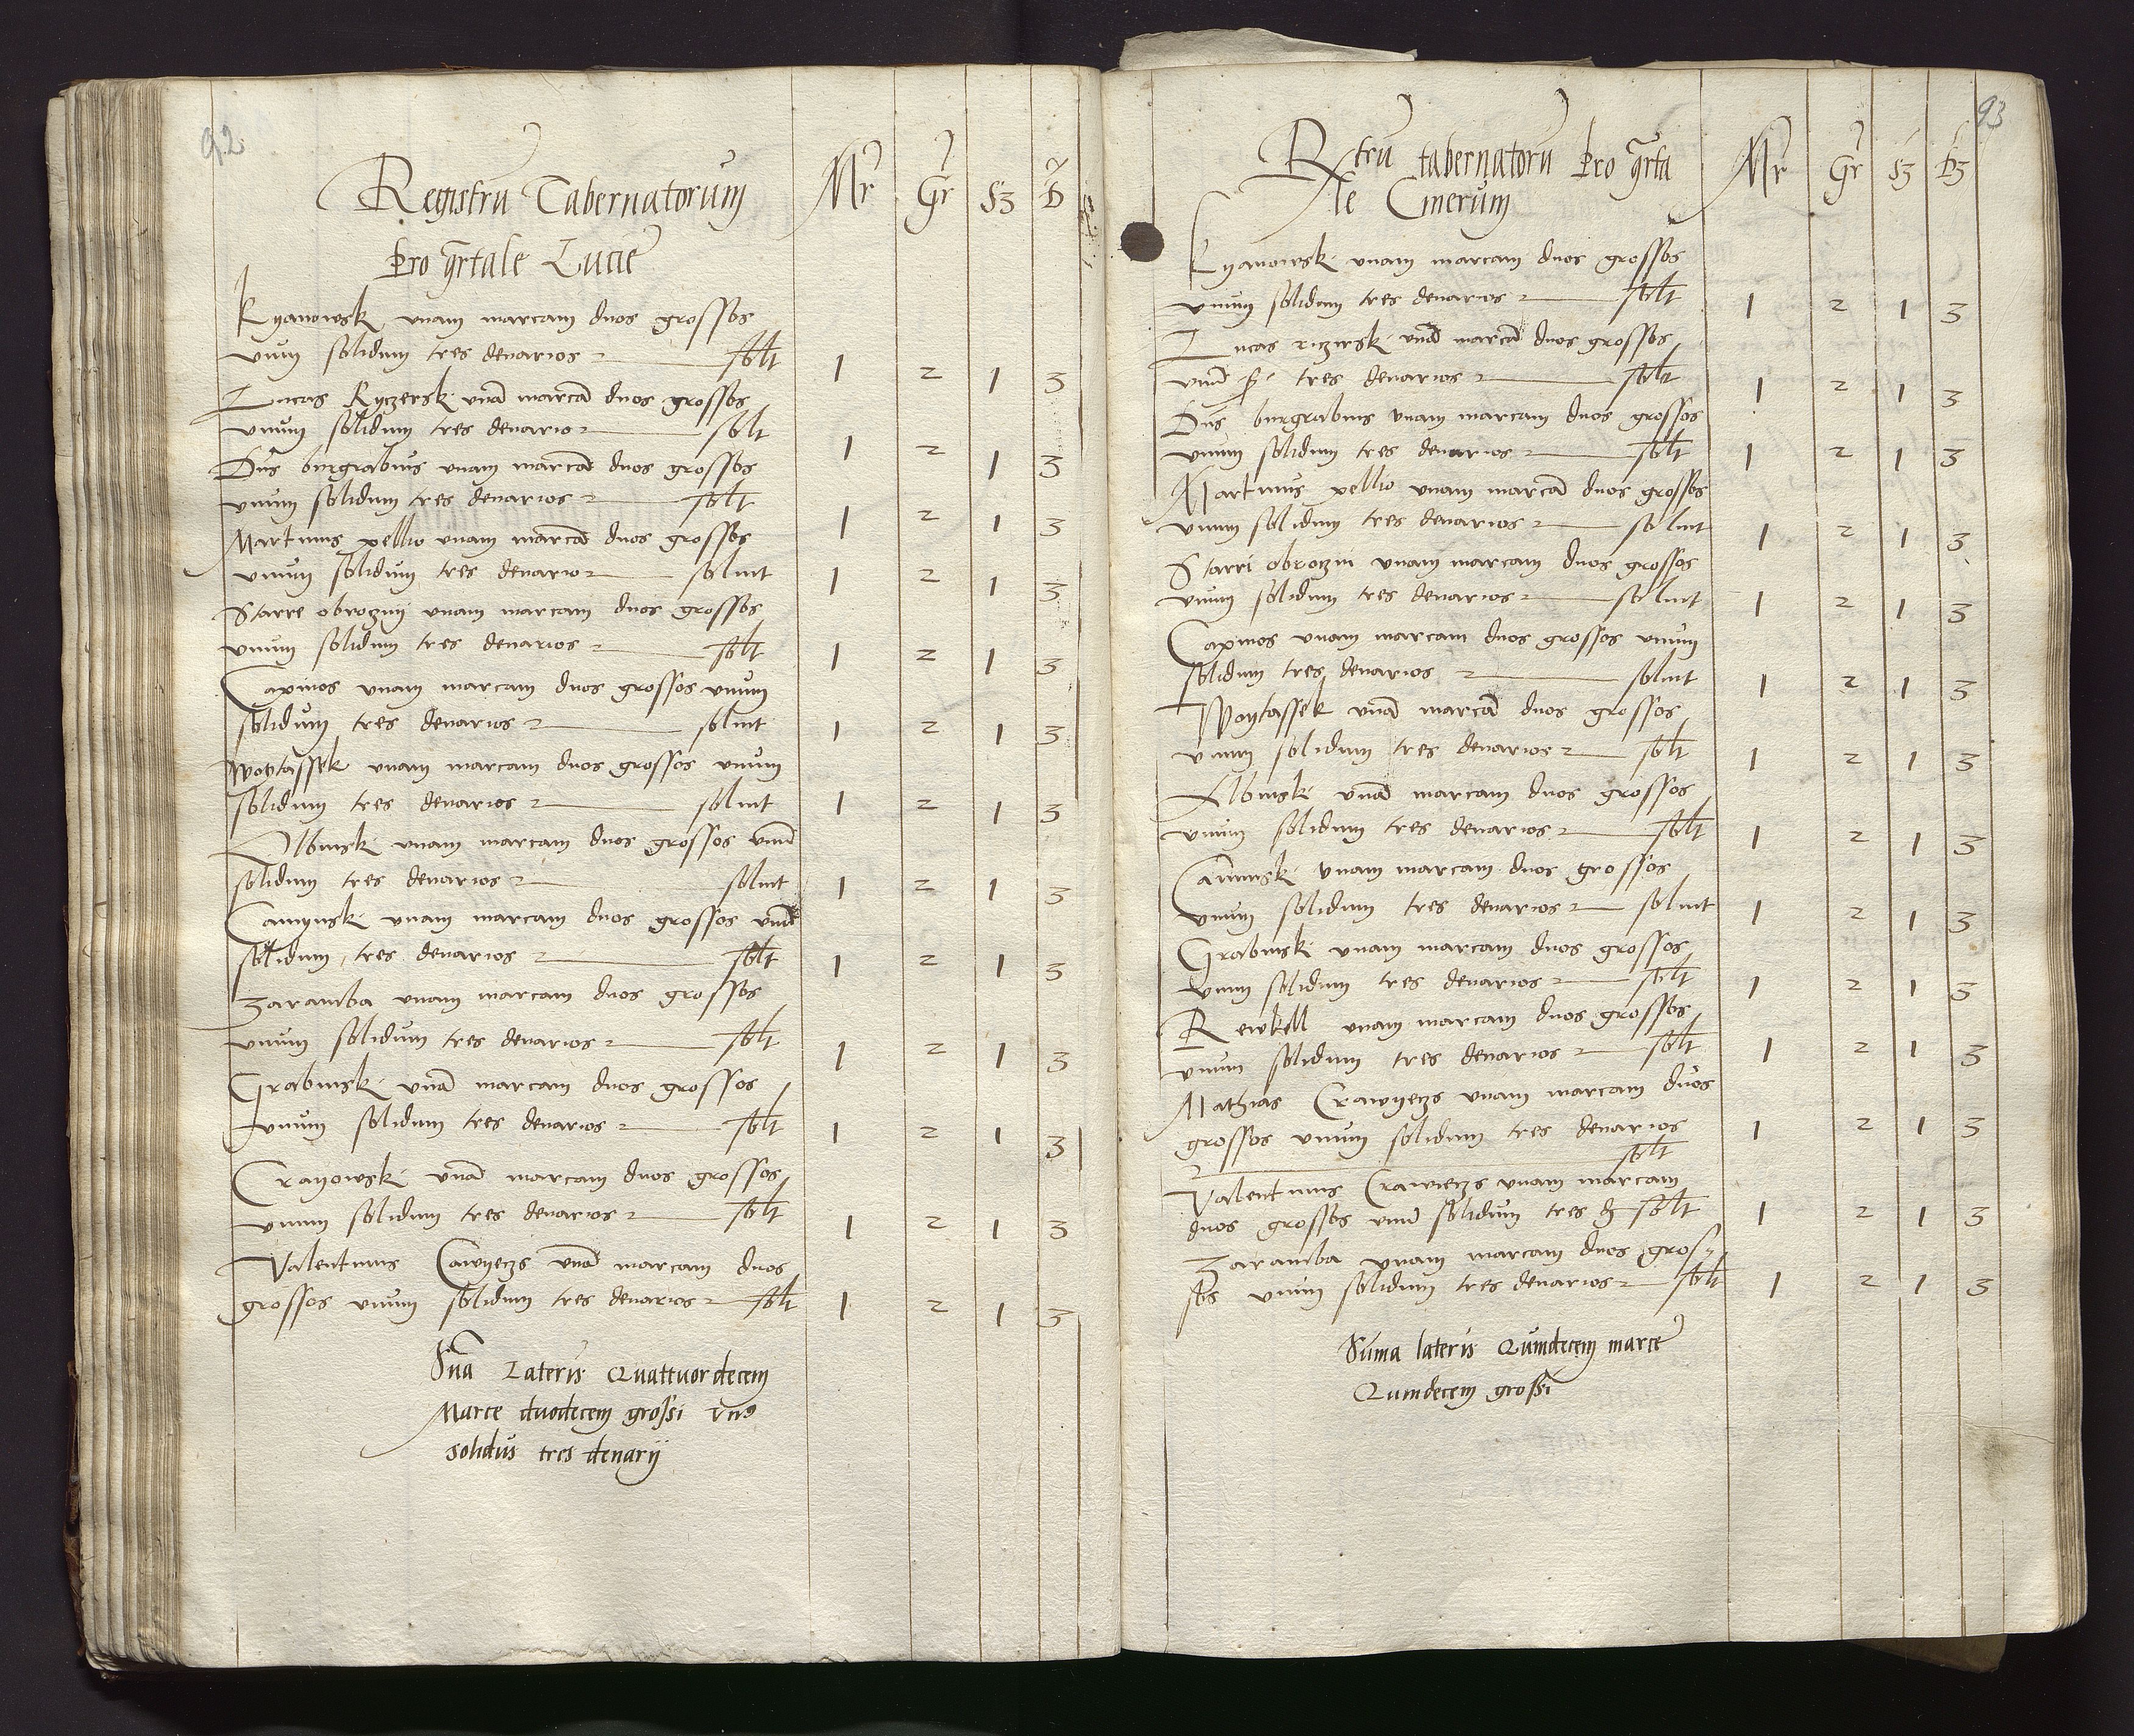 92
Registrũ Tabernatorum Mr Gr Sz D
Pro qrtale Lucie
Kyanowsk unam marcam duos grossos
unum solidum tres denarios solt 1 2 1 3
Lucas Ryczersk unã marcã duos grossos
unum solidum tres denario solt 1 2 1 3
Dns burgrabius unam marcã duos grossos
unum solidum tres denarios solt 1 2 1 3
Martinus pellio unam marcã duos grossos
unum solidum tres denario soluit 1 2 1 3
Starre obroczny unam marcam duos grossos
unum solidum tres denarios solt 1 2 1 3
Caxinos unam marcam duos grossos unum
solidum tres denarios soluit 1 2 1 3
Woytassek unam marcam duos grossos unum
solidum tres denarios soluit 1 2 1 3
Albinsk unam marcam duos grossos unũ
solidum tres denarios soluit 1 2 1 3
Camynsk unam marcam duos grossos unũ
solidum tres denarios solt 1 2 1 3
Zaramba unam marcam duos grossos
unum solidum tres denarios solt 1 2 1 3
Grabinsk unã marcam duos grossos
unum solidum tres denarios solt 1 2 1 3
Crayowsk unã marcam duos grossos
unum solidum tres denarios solt 1 2 1 3
Valentinus Cawyeczs unã marcam duos
grossos unum solidum tres denarios solt 1 2 1 3
Sma Lateris Quattuordecem
Marce duodecem grossi un9
solidus tres denarij
93
Rtrũ tabernatorũ Pro qrta Mr Gr Sz Dz
le Cinerum
Kyanowsk unam marcam duos grossos
unum solidum tres denarios solt 1 2 1 3
Lucas riczersk unã marcã duos grossos
unũ tres denarios solt 1 2 1 3
Dns burgrabius unam marcam duos grossos
unum solidum tres denarios solt 1 2 1 3
Martinus pellio unam marcã duos grossos
unum solidum tres denarios soluit 1 2 1 3
Starri obroczni unam marcam duos grossos
unum solidum tres denarios soluit 1 2 1 3
Caxinos unam marcam duos grossos unum
solidum tres denarios soluit 1 2 1 3
Woytassek unã marcã duos grossos
unum solidum tres denarios solt 1 2 1 3
Albinsk unã marcam duos grossos
unum solidum tres denarios solt 1 2 1 3
Caminsk unam marcam duos grossos
unum solidum tres denarios soluit 1 2 1 3
Grabinsk unam marcam duos grossos
unum solidum tres denarios solt 1 2 1 3
Rewkell unam marcam duos grossos
unum solidum tres denarios solt 1 2 1 3
Mathias Crawyeczs unam marcam duos
grossos unum solidum tres denarios 1 2 1 3
solt
Valentinus Crawieczs unam marcam
duos grossos unũ solidum tres d solt 1 2 1 3
Zaramba unam marcam duos gros
sos unum solidum tres denarios solt 1 2 1 3
Suma lateris Quindecem marce
Quindecem grossi